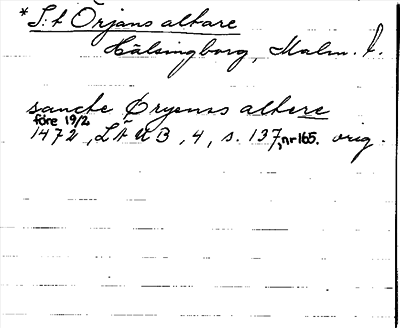 *S:t Örjans altare
Hälsingborg, Malm. l.
sancte Øryenss altere
före 19/2
1472, LÄUB, 4, s. 137, nr 165. orig.